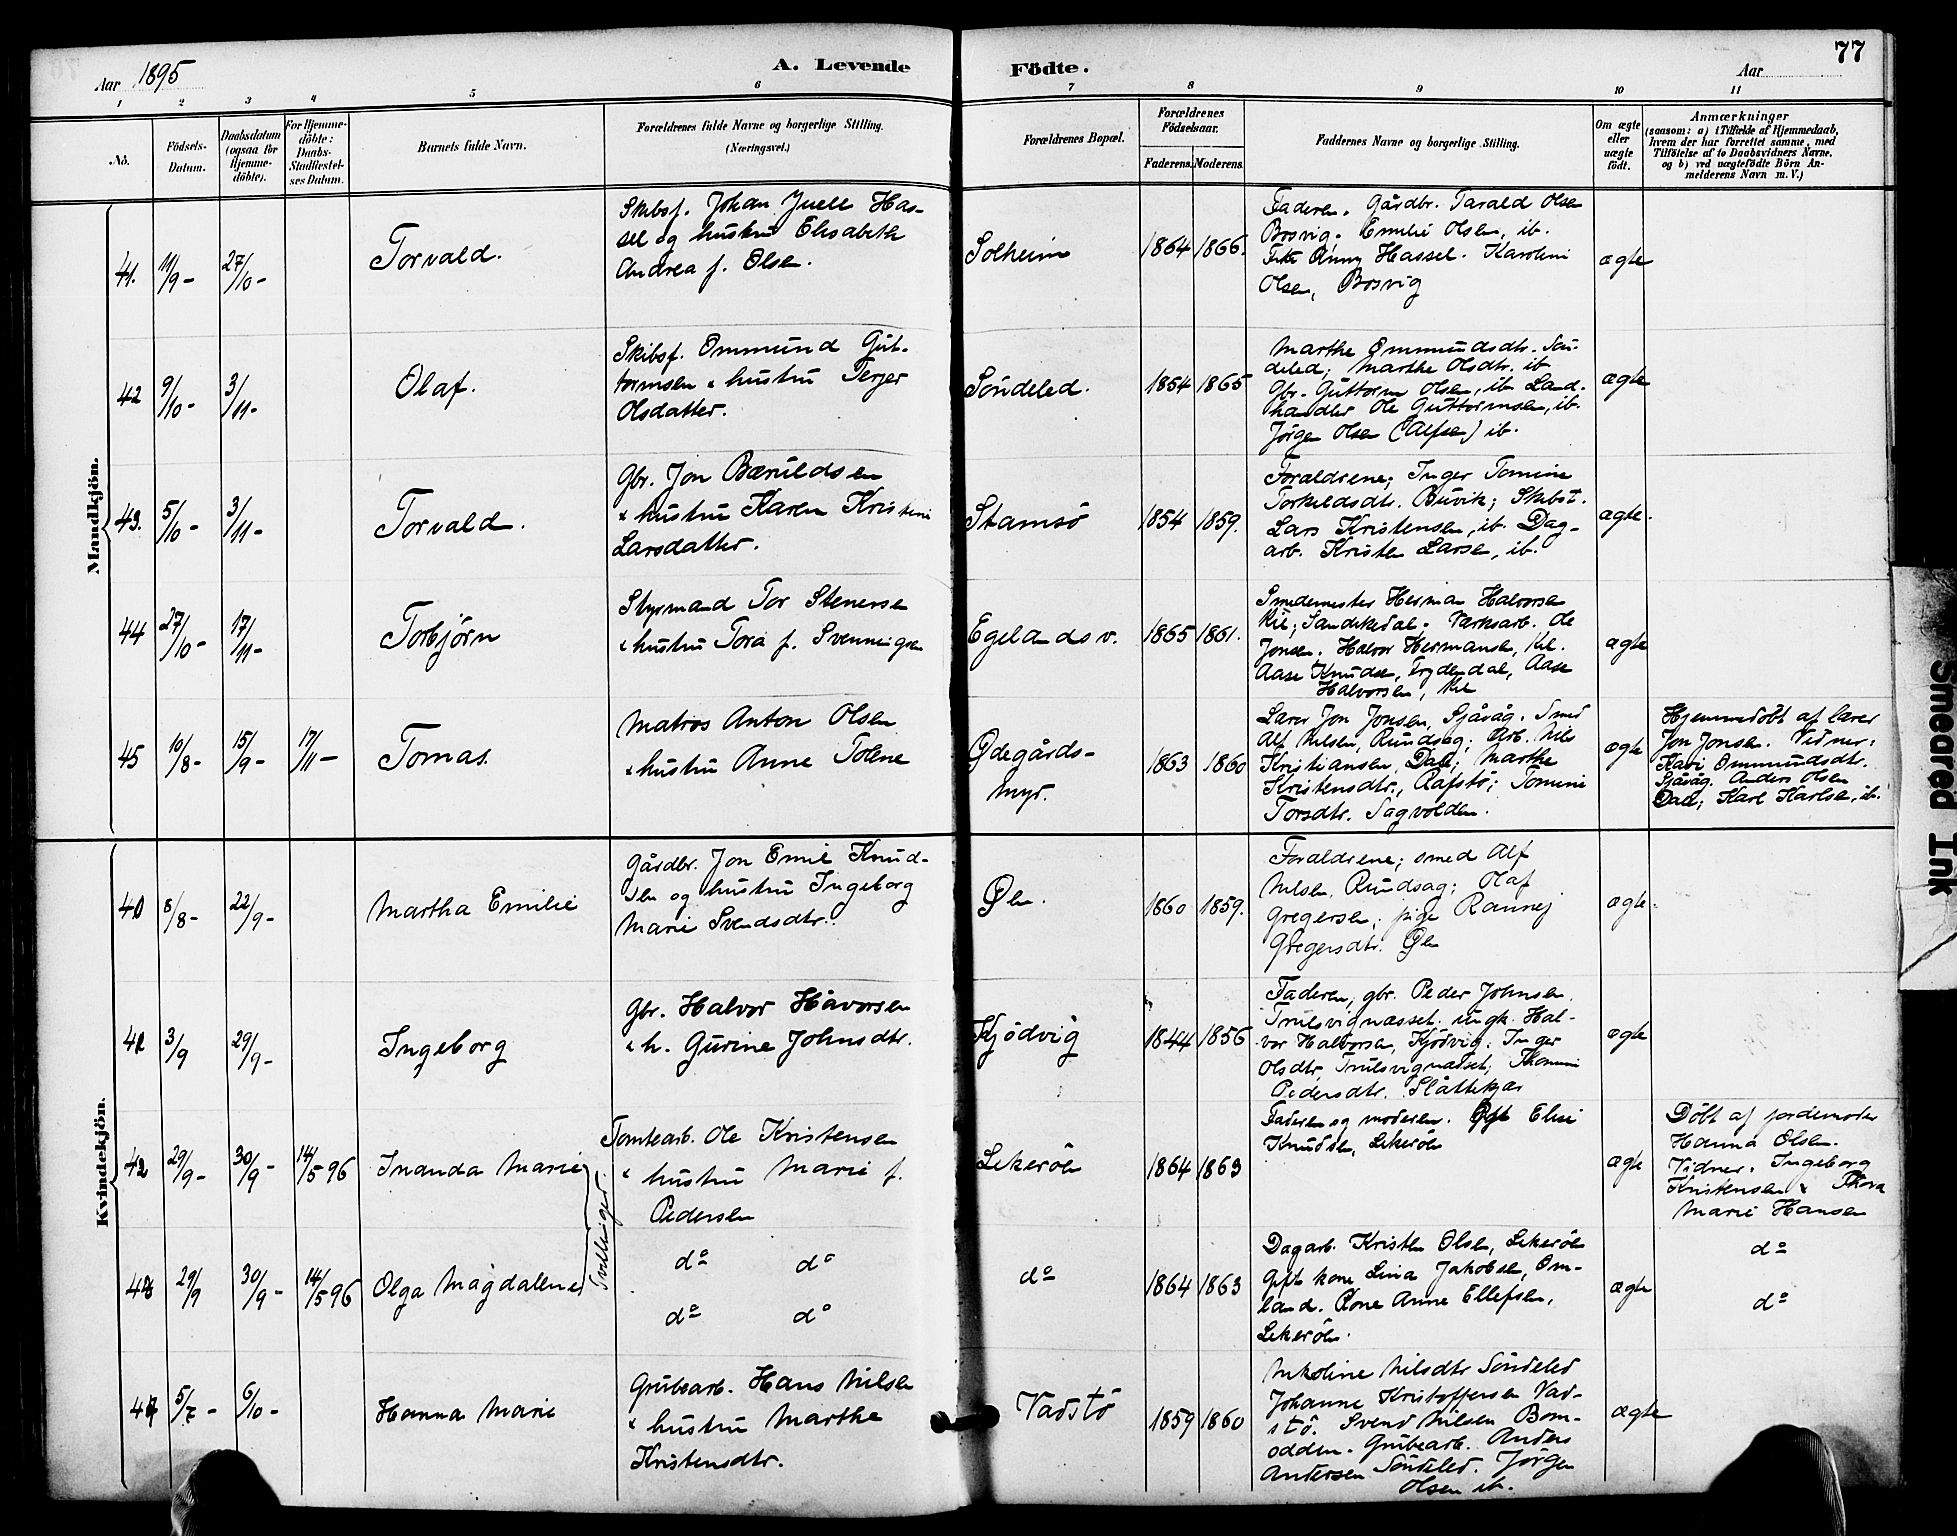 77
Aar 1895
A. Levende
Födte.
Aar
1 2 3 4 5 6 7 8 9 10 11
No.
Födsels-
Datum.
Daabsdatum
(ogsaa for
Hjemme-
döbte).
For Hjemme-
döbte:
Daabs-
Stadfæstel-
ses Datum.
Barnets fulde Navn.
Forældrenes fulde Navne og borgerlige Stilling.
(Næringsvei.)
Forældrenes Bopæl.
Forældrenes
Födselsaar.
Faderens. Moderens.
Faddernes Navne og borgerlige Stilling.
Om ægte
eller
uægte
födt.
Anmærkninger
(saasom: a) i Tilfælde af Hjemmedaab,
hvem der har forrettet samme, med
Tilföielse af to Daabsvidners Navne,
og b) ved uægtefödte Börn An-
melderens Navn m. V.)
Mandkjön.
41. 11/9 - 27/10 -
Torvald.
Skibsf. Johan Juell Has-
sel og hustru Elisabeth
Andrea f. Olsen.
Solheim
1864 1866.
Faderen. Gårdbr. Tarald Olsen
Bosvig. Emilie Olsen, ib.
Frk Anny Hassel. Karoline
Olsen, Bosvig
ægte
42 9/10 - 3/11 -
Olaf.
Skibsf. Ommund Gut-
tormsen & hustru Terjer
Olsdatter.
Söndeled.
1854 1865
Marthe Ommundsdtr. Sön-
deled; Marthe Olsdtr. ib
Gbr. Guttorm Olsen, ib. Land-
handler Ole Guttormsen, ib.
Jörgen Olsen (Alfsen) ib.
ægte
43. 5/10 - 3/11 -
Torvald.
Gbr. Jon Bæruldsen
& hustru Karen Kristine
Larsdatter.
Stamsö
1854 1859.
Forældrene; Inger Tomine
Torkeldsdtr. Buvik; Skibst.
Lars Kristensen, ib. Dag-
arb. Kristen Larsen, ib.
ægte.
44 27/10 - 17/11 -
Torbjörn
Styrmand Tor Stenersen
& hustru Tora f. Svenningsen
Egelandsv.
1865 1861.
Smedemester Herman Halvorsen
Kil; Sandökedal. Værksarb. Ole
Jonsen. Halvor Hermansen, Kil.
Aase Knudsen, Frydendal, Aase
Halvorsen, Kil
ægte
45 10/8 - 15/9 - 17/11 -
Tomas.
Matros Anton Olsen
& hustru Anne Tolene
Ödegårds-
myr.
1863 1860
Lærer Jon Jonsen, Sjåvåg. Smed
Alf Nilsen, Rundsag; Arb. Nils
Kristiansen, Dal; Marthe
Kristensdtr., Rafstö; Tomine
Torsdtr. Sagvolden.
ægte
Hjemmedöbt af lærer
Jon Jonsen. Vidner:
Kari Ommundsdtr.
Sjåvåg. Anders Olsen
Dal; Karl Karlsen, ib.
Kvindekjön.
40 8/8 - 22/9 -
Martha Emilie
Gårdbr. Jon Emil Knud-
sen og hustru Ingeborg
Marie Svendsdtr.
Öen.
1860 1859.
Forældrene; smed Alf
Nilsen, Rundsag; Olaf
Gregersen; pige Rannej
Gregersdtr. Öen
ægte.
41 3/9 29/9 -
Ingeborg
Gbr. Halvor Håvorsen
& h. Gurine Johnsdtr.
Kjödvig
1844 1856
Faderen; gbr. Peder Johnsen,
Trulsvignæsset. ungk. Hal-
vor Halvorsen, Kjödvig. Inger
Olsdtr, Trulsvignæsset; Thomine
Pedersdtr. Slåttekjær
ægte
42 29/9 - 30/9 - 14/5 96
Inanda Marie
Tvillinger.
Tomtearb. Ole Kristensen
& hustru Marie f.
Pedersen
Lekeröen
1864 1863
Faderen og moderen. Gft Elise
Knudsen, Lekeröen
ægte
Döbt af jordemoder
Hanna Olsen.
Vidner. Ingeborg
Kristensen & Thora
Marie Hansen
43 29/9 30/9 - 14/5 96
Olga Magdalene
do do
do do
do
1864 1863
Dagarb. Kristen Olsen, Lekeröen
Gift kone Lina Jakobsen, Om-
land. Kone Anne Ellefsen,
Lekeröen.
ægte
do
do
44 5/7 - 6/10 -
Hanna Marie
Grubearb. Hans Nilsen
& hustru Marthe
Kristensdtr.
Vadstö
1859 1860
Nikoline Nilsdtr Söndeled
Johanne Kristoffersen Vad-
stö. Svend Nilsen Bom-
odden. Grubearb. Anders
Andersen Söndeled. Jörgen
Olsen ib.
ægte
Smeared Ink